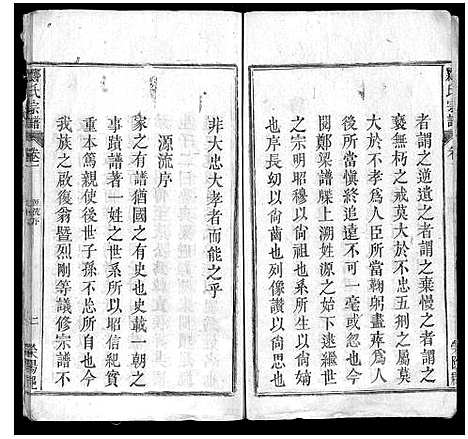 者謂之逆遺之者謂之棄慢之者謂之
褻無朽之戒莫大於不忠五刑之屬莫
大於不孝爲人臣所當鞠躬盡瘁爲人
後所當愼終追遠不可一毫或偝也今
閱鄭梁譜牒上溯姓源之始下逮繼世
之宗明昭穆以尙祖也系所生以尙嗣
也序長幼以尙齒也列像讚以尙
非大忠大孝者而能之乎
源流序
家之有譜猶國之有史也史載一朝之
事蹟譜著一姓之世系所以昭信紀實
重本篤親使後世子孫不忘所自也今
我族之啟後翁暨烈剛等議修宗譜不
氏宗譜
卷一
二